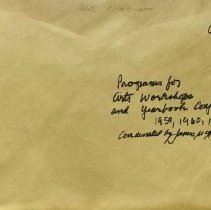 Programs for
Arts Workshops
and Yearbook
1959, 1960, 1
Coordinated by James